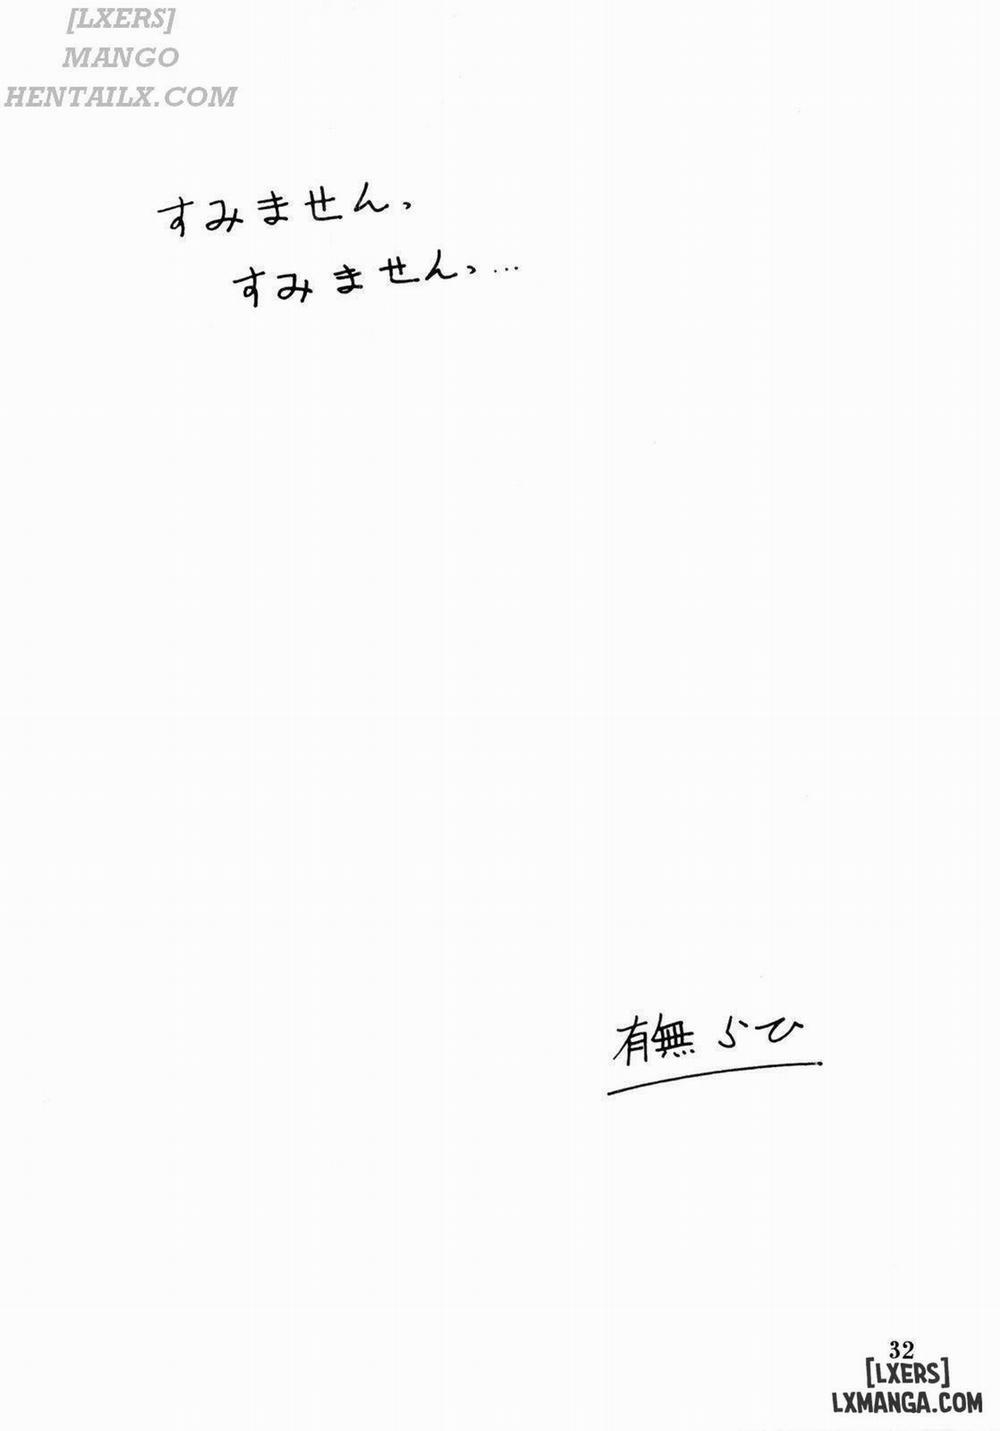 [LXERS]
MANGO
HENTAILX.COM
すみません、
すみません、…
有無らひ
32
[LXERS]
LXMANGA.COM